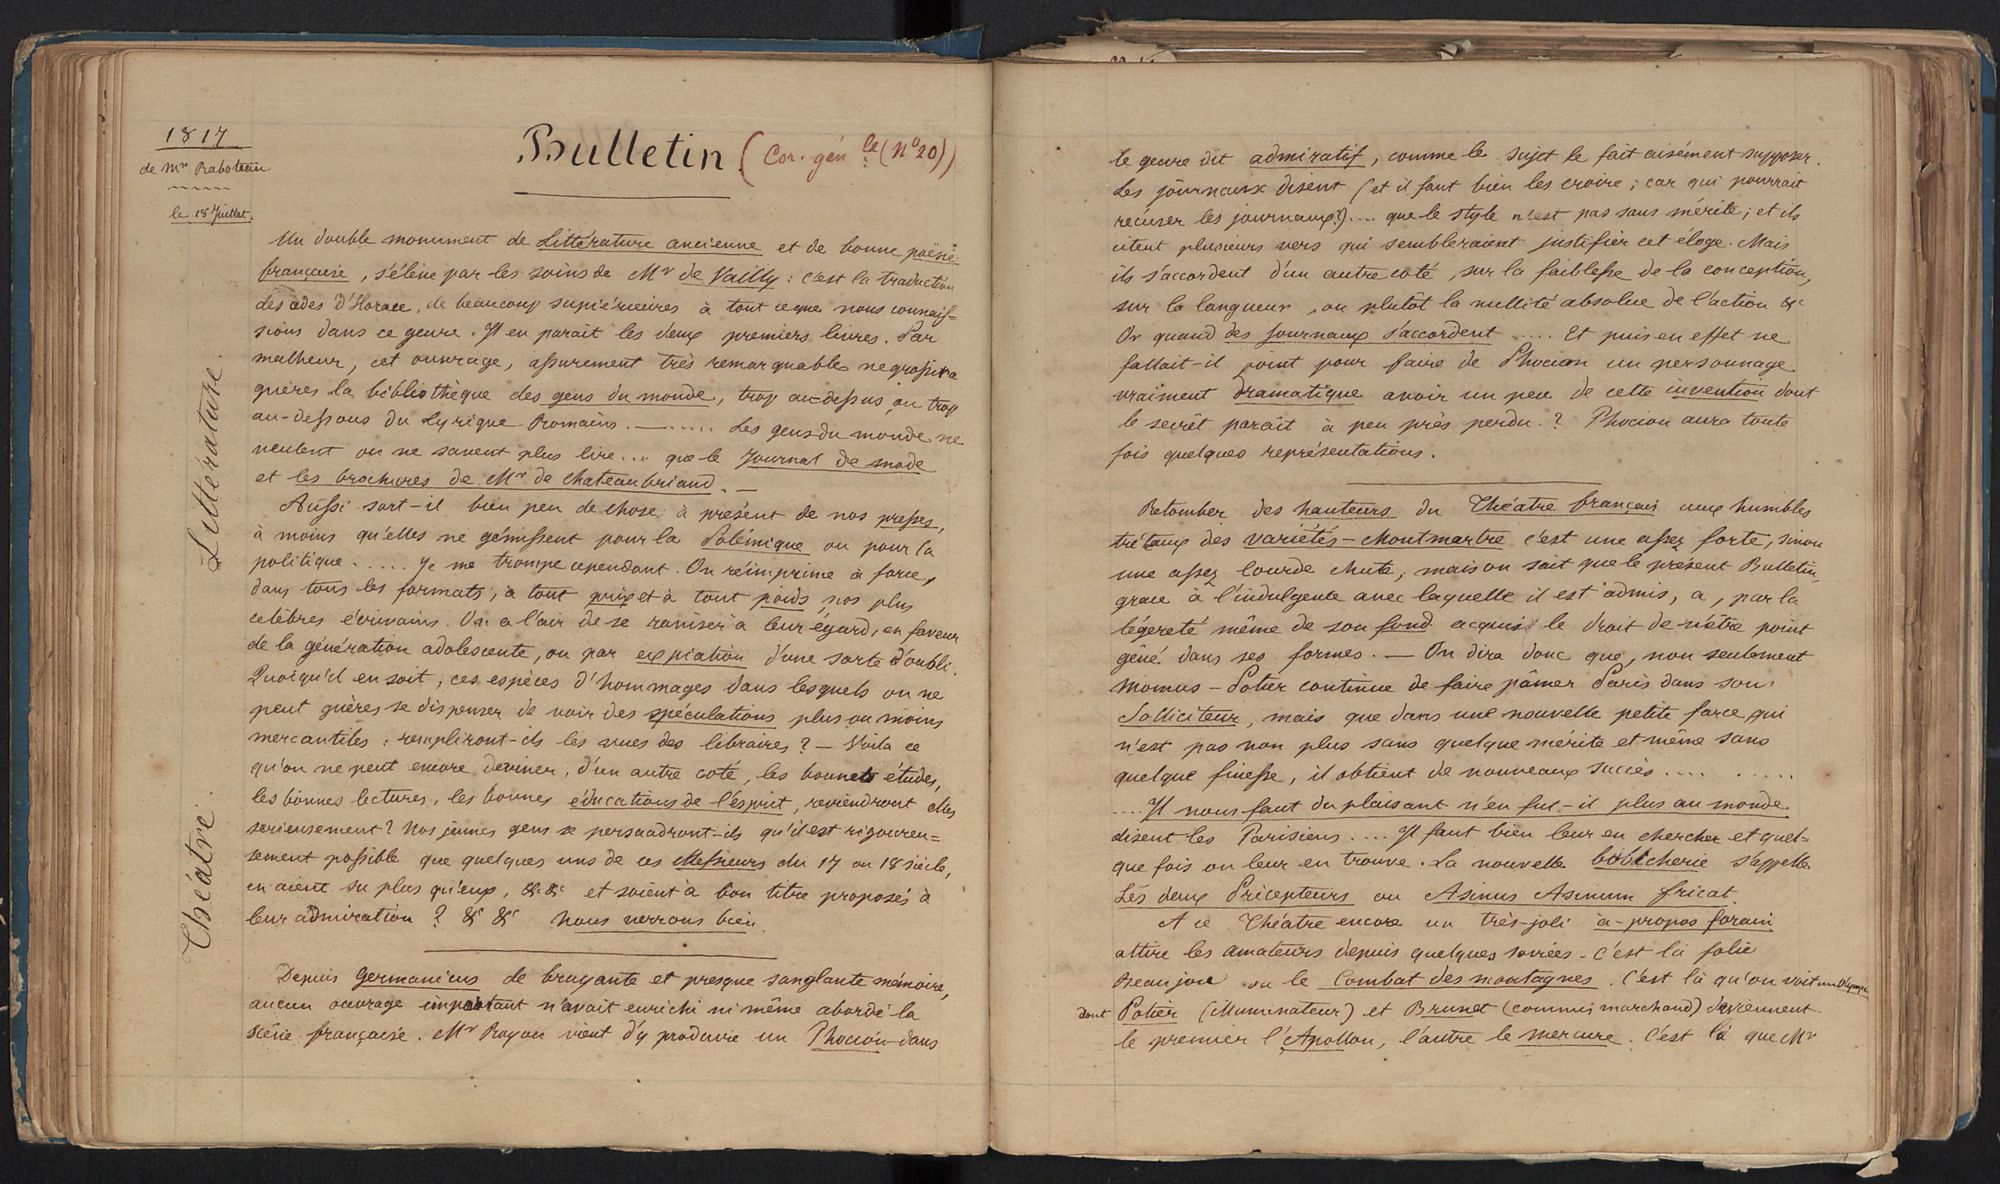 1817
de Mr Raboteau
le 18 Juillet.
Bulletin (Cor. génle (No 20))
Littérature.
Un double monument de Littérature ancienne et de bonne poësie
française, s'élève par les soins de Mr de Vailly : c'est la traduction
des odes d'Horace, de beaucoup supérieures à tout ce que nous connais-
sions dans ce genre. Il en parait les deux premiers livres. Par
malheur, cet ouvrage, assurement très remarquable ne grossira
guères la bibliothèque des gens du monde, trop au-dessus ou trop
au-dessous du Lyrique Romain. — ..... Les gens du monde ne
veulent ou ne savent plus lire... que le Journal de mode
et les brochures de Mr de Chateaubriand. —
Aussi sort-il bien peu de chose à présent de nos presses,
à moins qu'elles ne gémissent pour la Polémique ou pour la
politique ..... Je me trompe cependant. On réimprime à force,
dans tous les formats, à tout prix et à tout poids nos plus
célèbres écrivains. On a l'air de se raviser à leur égard, en faveur
de la génération adolescente, ou par expiation d'une sorte d'oubli.
Quoiqu'il en soit, ces espèces d'hommages dans lesquels on ne
peut guères se dispenser de voir des spéculations plus ou moins
mercantiles : rempliront-ils les vues des libraires ? — Voila ce
qu'on ne peut encore deviner, d'un autre coté, les bonnes études,
les bonnes lectures, les bonnes éducations de l'esprit, reviendront elles
serieusement ? Nos jeunes gens se persuadront-ils qu'il est rigoureu=
sement possible que quelques uns de ces Messieurs du 17 ou 18 siècle,
en aient su plus qu'eux, &c &c et soient à bon titre proposés à
leur admiration ? &c &c Nous verrons bien.
Théâtre.
Depuis Germanicus de bruyante et presque sanglante mémoire,
aucun ouvrage important n'avait enrichi ni même abordé la
scène française. Mr Royou vient d'y produire un Phocion dans
le genre dit admiratif, comme le sujet le fait aisément supposer.
Les journaux disent (et il faut bien les croire ; car qui pourrait
recuser les journaux ?) .... que le style n'est pas sans mérite ; et ils
citent plusieurs vers qui sembleraient justifier cet éloge. Mais
ils s'accordent d'un autre coté, sur la faiblesse de la conception,
sur la langueur, ou plutôt la nullité absolue de l'action &c
Or quand des journaux s'accordent .... Et puis en effet ne
fallait-il point pour faire de Phocion un personnage
vraiment dramatique avoir un peu de cette invention dont
le secrèt paraît à peu près perdu. ? Phocion aura toute
fois quelques représentations.
Retomber des hauteurs du Théatre français aux humbles
trétaux des Variétés-Montmartre c'est une assez forte, sinon
une assez lourde chute ; mais on sait que le présent Bulletin,
grace à l'indulgente avec laquelle il est admis, a, par la
légereté même de son fond acquis le droit de n'être point
gêné dans ses formes. — On dira donc que, non seulement
Momus-Potier continue de faire pâmer Paris dans son
Solliciteur, mais que dans une nouvelle petite farce qui
n'est pas non plus sans quelque mérite et même sans
quelque finesse, il obtient de nouveaux succès .... .....
.... Il nous faut du plaisant n'en fut-il plus au monde
disent les Parisiens .... Il faut bien leur en chercher et quel=
que fois on leur en trouve. La nouvelle s'appelle
Les deux Précepteurs ou Asinus Asinum fricat.
A ce Théatre encore un très-joli à-propos forain
attire les amateurs depuis quelques soirées. C'est la folie
Beaujon ou le Combat des montagnes. C'est là qu'on voit un Olympe
dont Potier (illuminateur) et Brunet (commis marchand) deviennent
le premier l'Apollon, l'autre le mercure. C'est là que Mr